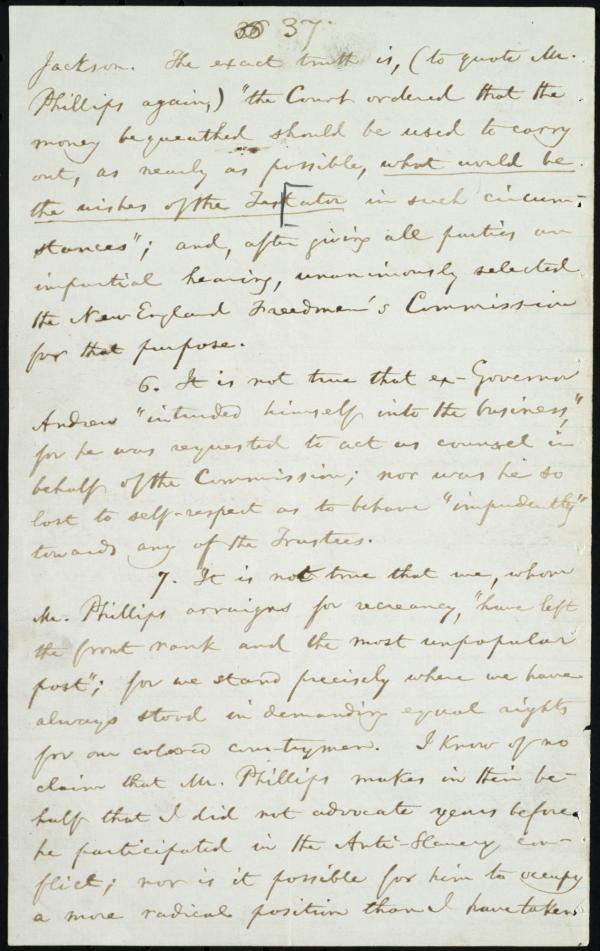 37.
Jackson. The exact truth is, (to quote Mr.
Phillips again,) "the Court ordered that the
money bequeathed should be used to carry
out, as nearly as possible, what would be
the wishes of the Testator in such circum-
stances"; and, after giving all parties an
impartial hearing, unanimously selected
the New England Freedmen's Commission
for that purpose.
6. It is not true that ex-Governor
Andrew "intruded himself into the business,"
for he was requested to act as counsel in
behalf of the Commission; nor was he so
lost to self-respect as to behave "impudently"
towards any of the Trustees.
7. It is not true that we, whom
Mr. Phillips arraigns for recreancy, "have left
the front rank and the most unpopular
post"; for we stand precisely where we have
always stood in demanding equal rights
for our colored countrymen. I know of no
claim that Mr. Phillips makes in their be-
half that I did not advocate years before
he participated in the Anti-Slavery con-
flict; nor is it possible for him to occupy
a more radical position than I have taken